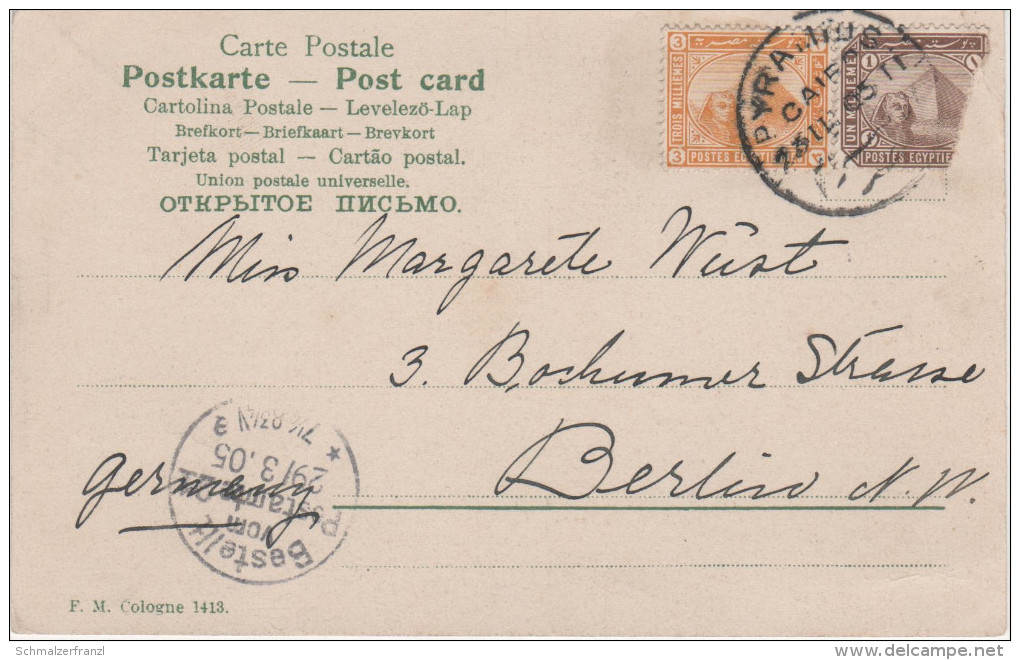 Carte Postale
Postkarte — Post card
Cartolina Postale — Levelezö-Lap
Brefkort — Briefkaart — Brevkort
Tarjeta postal — Cartão postal.
Union postale universelle.
ОТКРЫТОЕ ПИСЬМО.
3 3
TROIS MILLIEMES
3
POSTES EGYPTIE
1 1
UN MILLIEME
POSTES EGYPTIE
PYRAMIDS
CAIRO
Miss Margarete Wüst
3. Bochumer Strasse
Berlin N.W.
Germany
Bestellt
vom
Postamte
29/3.05
F. M. Cologne 1413.
Schmalzerfranzl
delcampe.net